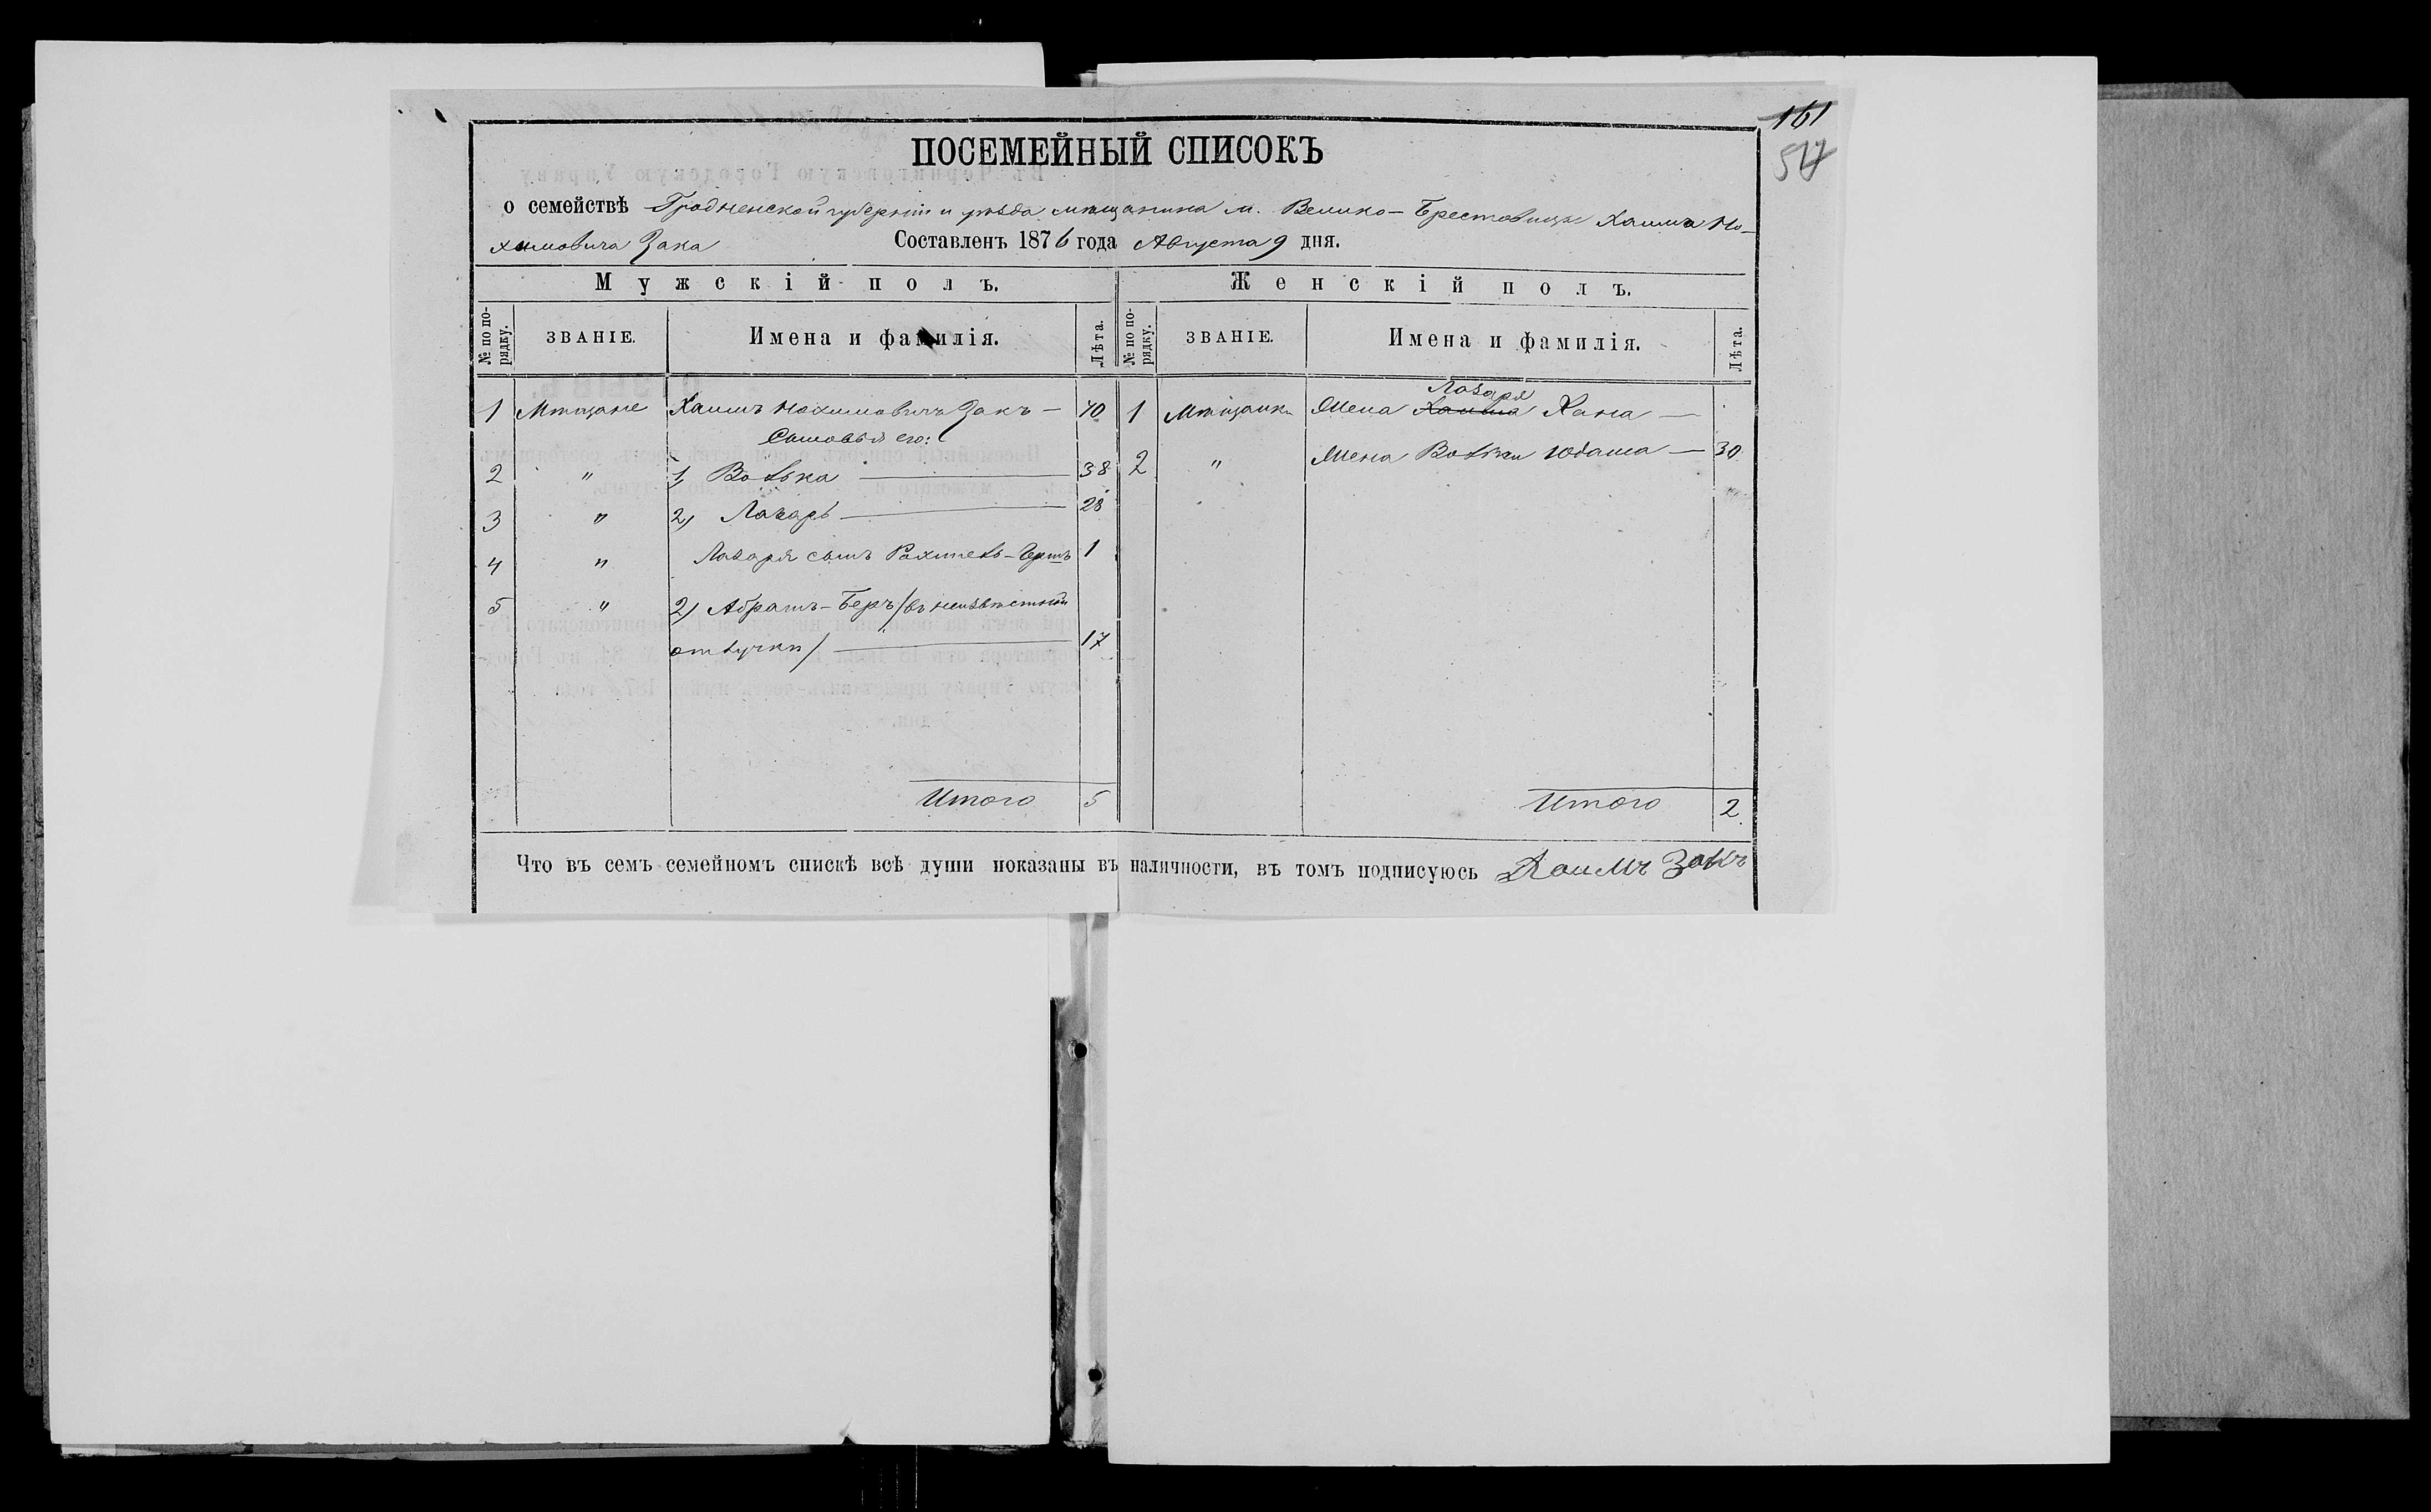 161
517
ПОСЕМЕЙНЫЙ СПИСОКЪ
о семействѣ Гродненской губерніи и уѣзда мѣщанина м. Велико-Брестовицы Хаима Но-
химовича Зака Составленъ 1876 года Августа 9 дня.
Мужскій полъ. Женскій полъ.
№ по порядку. ЗВАНІЕ. Имена и фамилія. Лѣта. № по порядку. ЗВАНІЕ. Имена и фамилія. Лѣта.
Лазаря
1 Мѣщане Хаимъ Нохимовичъ Закъ — 70 1 Мѣщанки Жена Хаима Хана —
Сыновья его:
2 " 1, Вовька — 38 2 " Жена Вовьки Юдаша — 30
3 " 2, Лазарь — 28
4 " Лазаря сынъ 1
5 " 2, Абрамъ-Беръ /въ неизвѣстной
отлучки/ — 17
Итого 5 Итого 2
Что въ семъ семейномъ спискѣ всѣ души показаны въ наличности, въ томъ подписуюсь Хаимъ Закъ